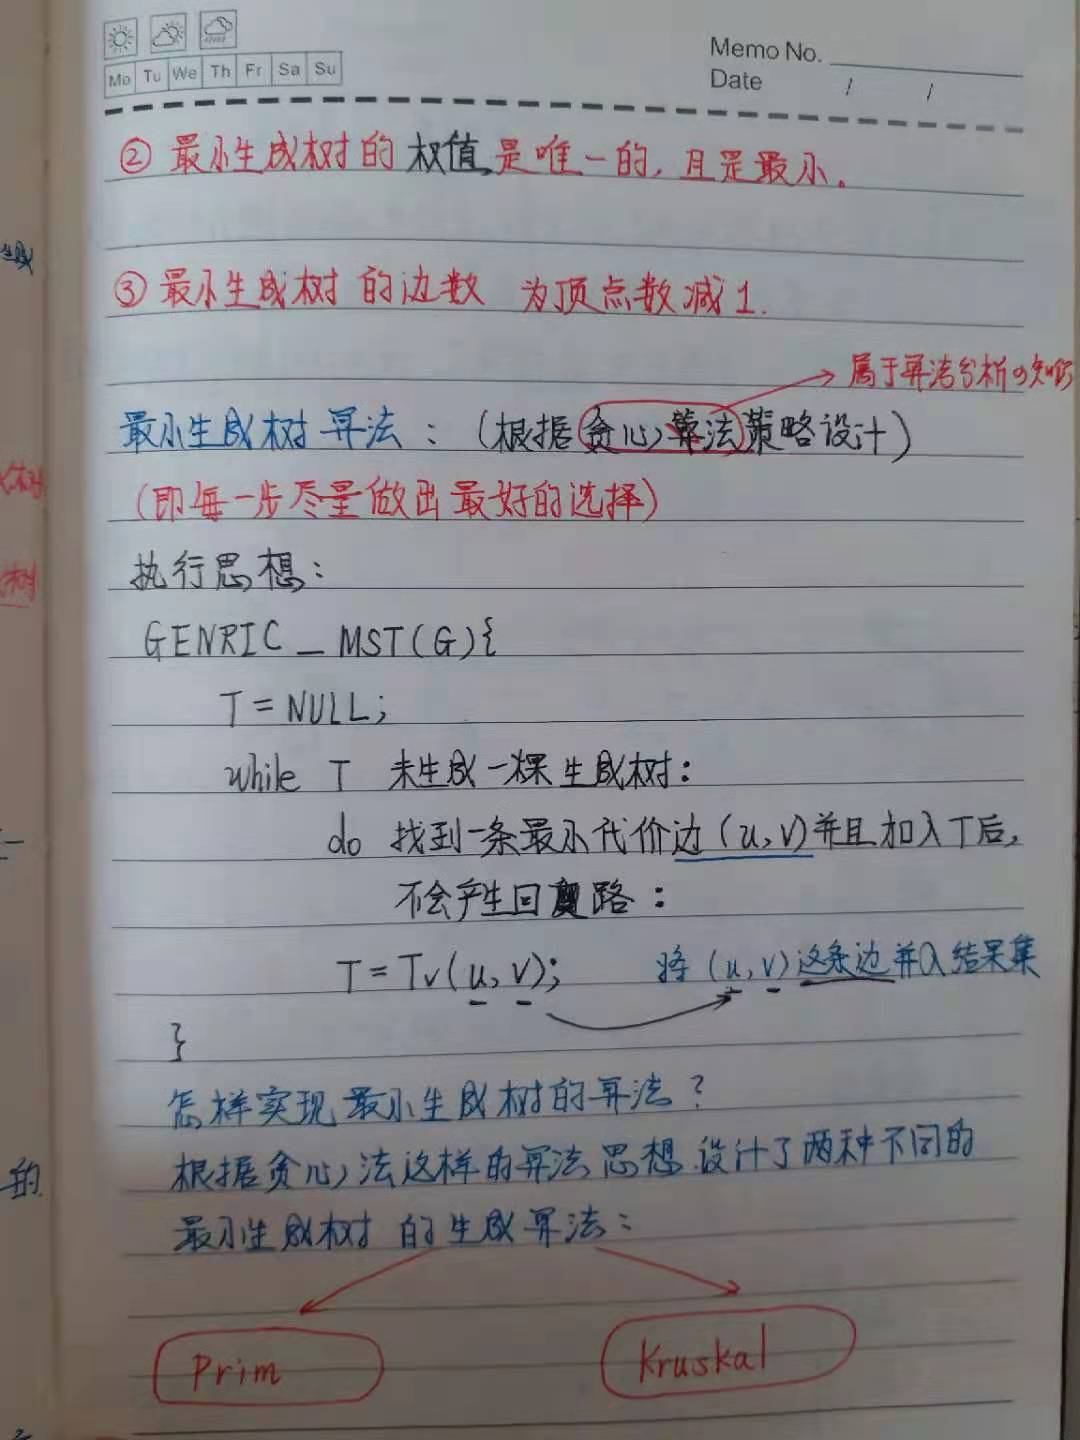 Memo No.
Mo Tu We Th Fr Sa Su
Date / /
② 最小生成树的权值是唯一的,且是最小.
③ 最小生成树的边数 为顶点数减1.
属于算法分析の知识
最小生成树算法:(根据贪心算法策略设计)
(即每一步尽量做出最好的选择)
执行思想:
GENRIC_MST(G){
T=NULL;
while T 未生成一棵生成树:
do 找到一条最小代价边(u,v)并且加入T后,
不会产生回路:
T=Tv(u,v); 将(u,v)这条边并入结果集
}
怎样实现最小生成树的算法?
根据贪心法这样的算法思想.设计了两种不同的
最小生成树的生成算法:
Prim Kruskal
的